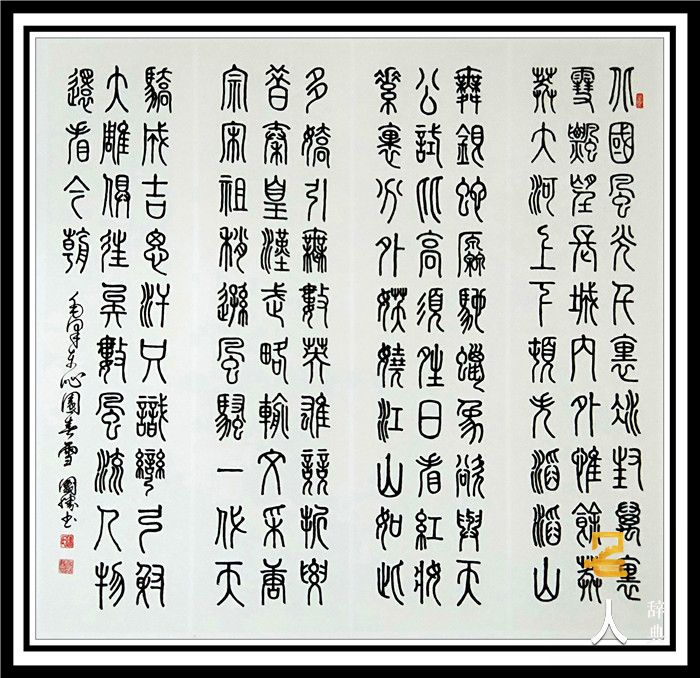 北國風光千里冰封萬里
雪飄望長城內外惟餘莽
莽大河上下頓失滔滔山
舞銀蛇原馳蠟象欲與天
公試比高須晴日看紅妝
素裹分外妖嬈江山如此
多嬌引無數英雄競折腰
昔秦皇漢武略輸文采唐
宗宋祖稍遜風騷一代天
驕成吉思汗只識彎弓射
大雕俱往矣數風流人物
還看今朝
毛澤東沁園春雪 國勝書
人
辞典